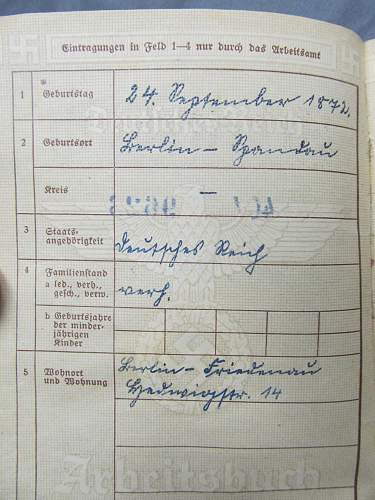 Eintragungen in Feld 1—4 nur durch das Arbeitsamt
1 Geburtstag 24. September 1872.
2 Geburtsort Berlin – Spandau
Kreis —
3 Staats-
angehörigkeit Deutsches Reich
4 Familienstand
a led., verh.,
gesch., verw. verh.
b Geburtsjahre
der minder-
jährigen
Kinder
5 Wohnort
und Wohnung
Berlin – Friedenau
Hedwigstr. 14
Arbeitsbuch